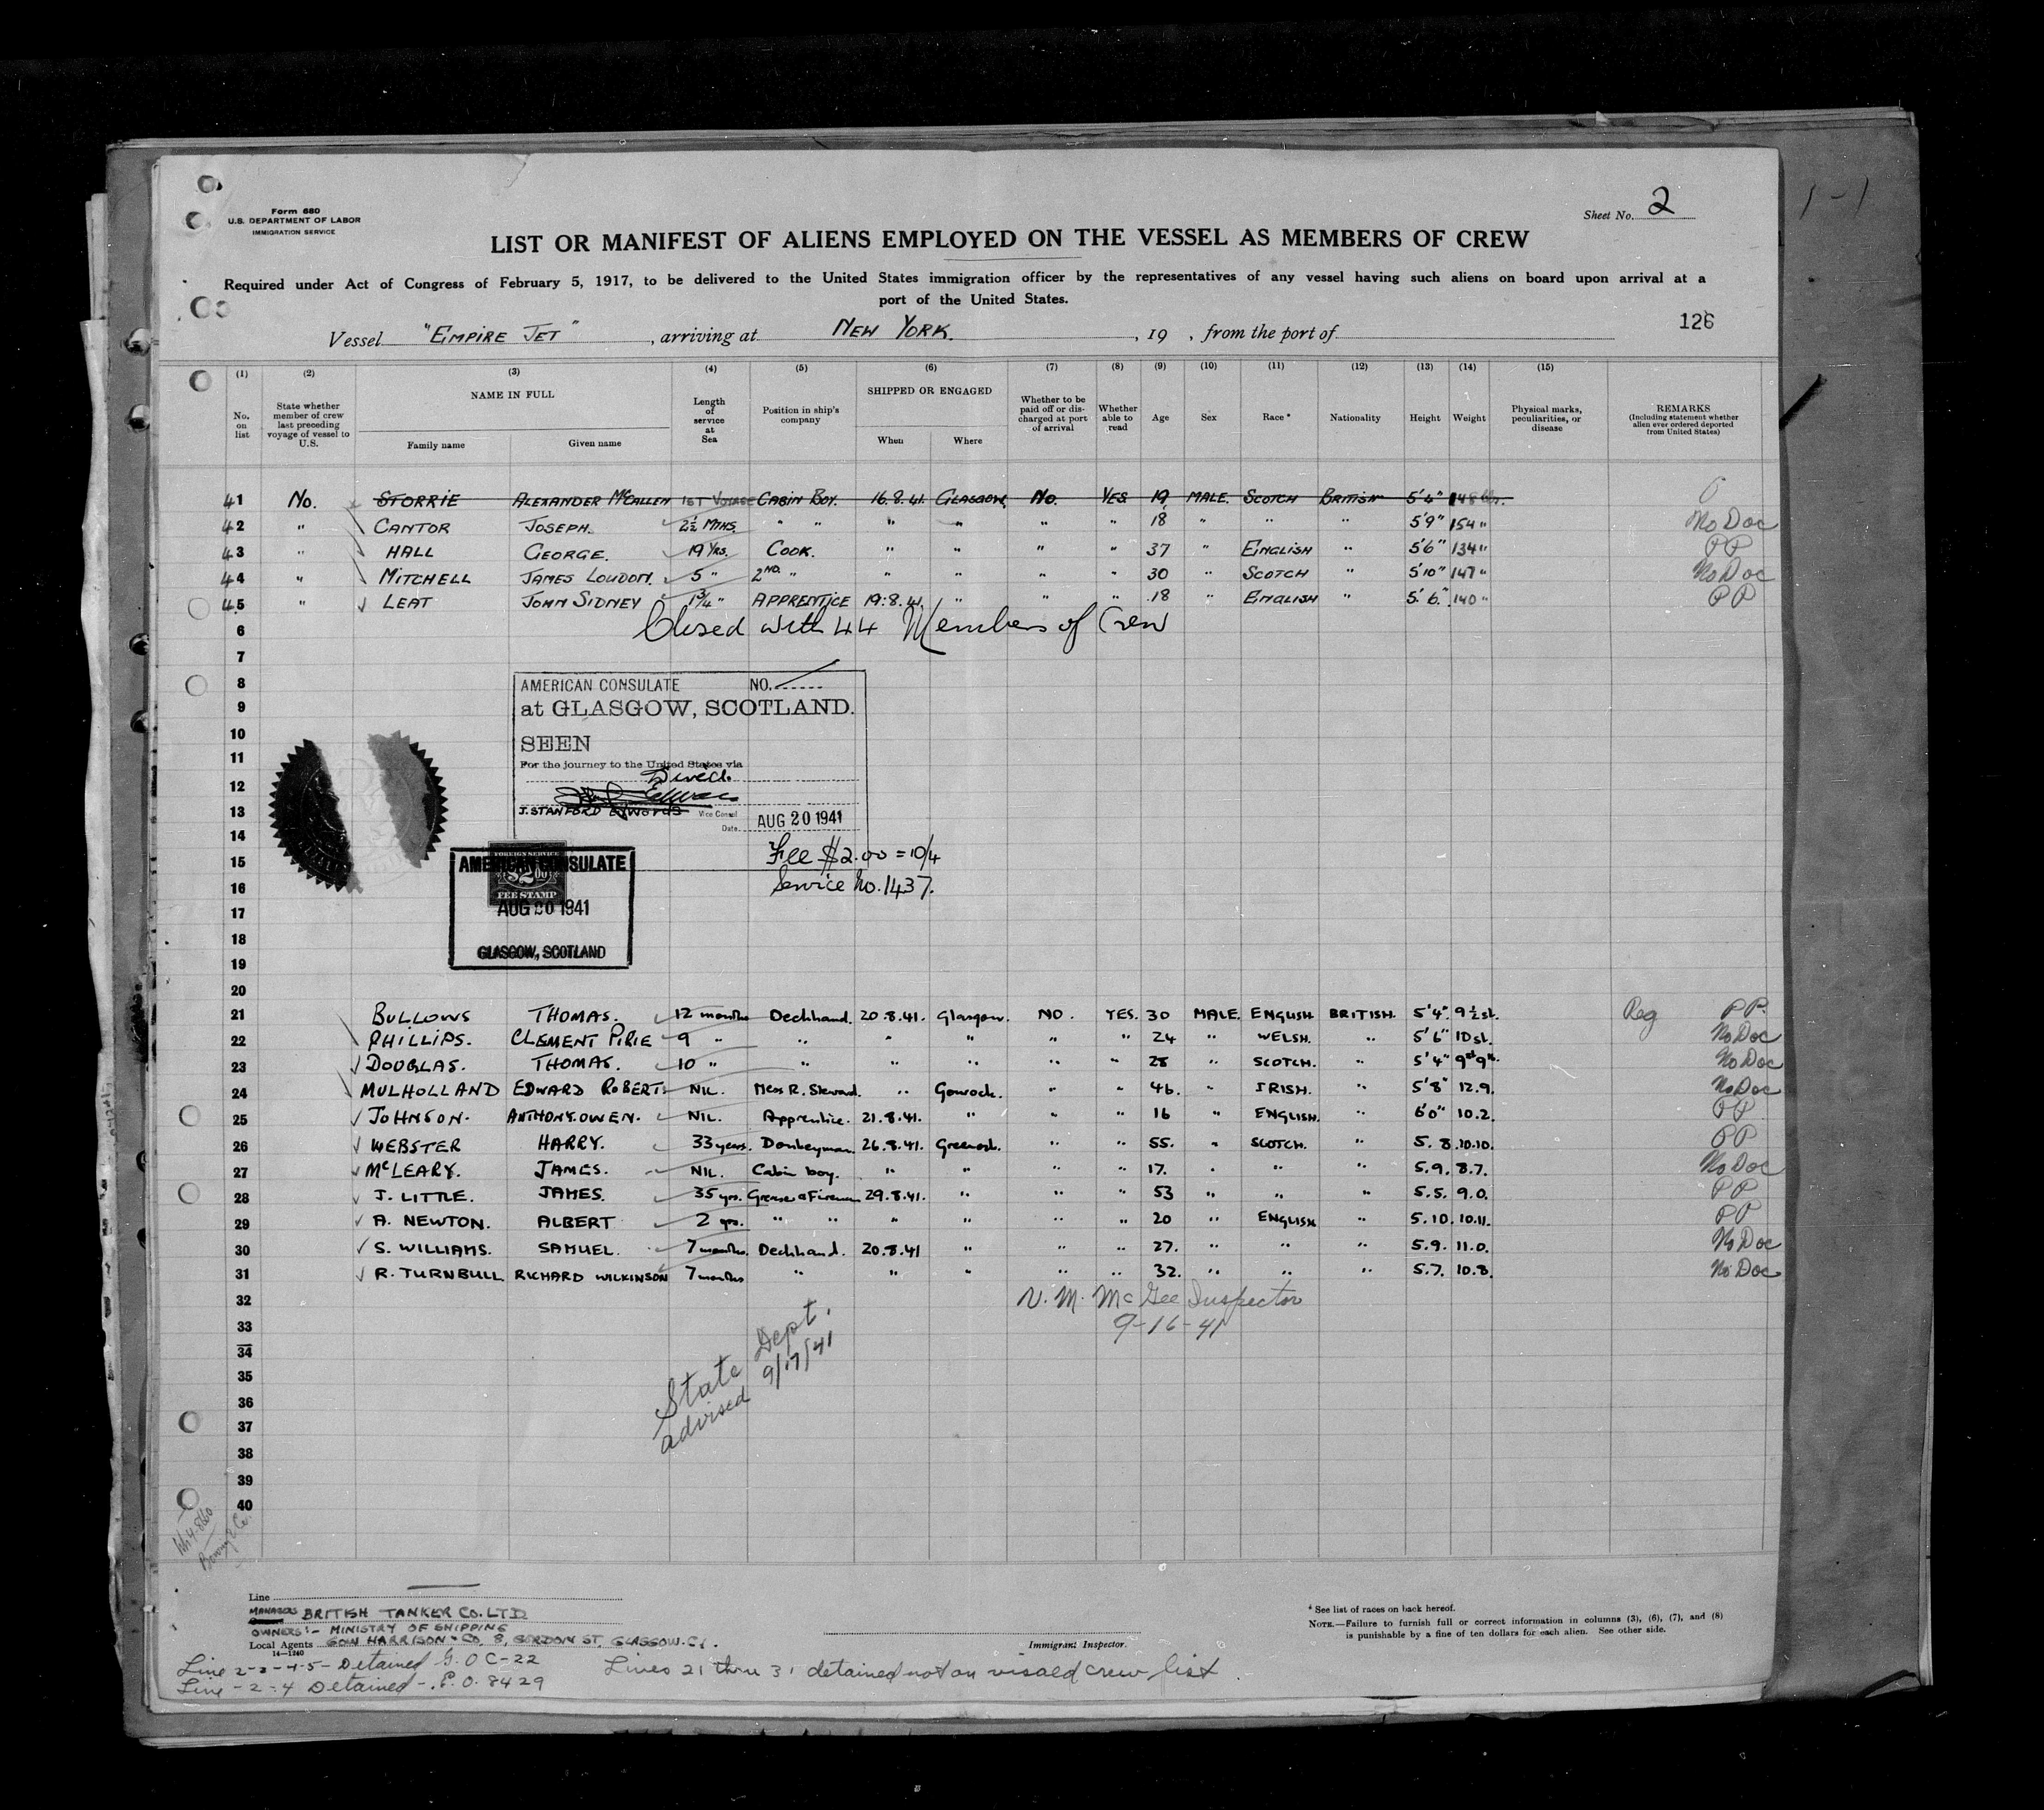 Form 680
U.S. DEPARTMENT OF LABOR
IMMIGRATION SERVICE
Sheet No. 2
1-1
LIST OR MANIFEST OF ALIENS EMPLOYED ON THE VESSEL AS MEMBERS OF CREW
Required under Act of Congress of February 5, 1917, to be delivered to the United States immigration officer by the representatives of any vessel having such aliens on board upon arrival at a
port of the United States.
126
Vessel "EMPIRE JET", arriving at NEW YORK., 19 , from the port of
(1) (2) (3) (4) (5) (6) (7) (8) (9) (10) (11) (12) (13) (14) (15)
No. on list State whether member of crew last preceding voyage of vessel to U.S. NAME IN FULL Family name Given name Length of service at Sea Position in ship's company SHIPPED OR ENGAGED When Where Whether to be paid off or discharged at port of arrival Whether able to read Age Sex Race* Nationality Height Weight Physical marks, peculiarities, or disease REMARKS (Including statement whether alien ever ordered deported from United States)
41 No. STORRIE ALEXANDER McCALLEN 1ST VOYAGE CABIN BOY. 16.8.41. GLASGOW No. YES 19 MALE SCOTCH BRITISH 5'4" 148 lbs.
42 " CANTOR JOSEPH. 2½ MTHS. " " " " " " 18 " " " 5'9" 154 " No Doc
43 " HALL GEORGE. 19 YRS. COOK. " " " " 37 " ENGLISH " 5'6" 134 " PP
44 " MITCHELL JAMES LOUDON. 5 " 2ND. " " " " " 30 " SCOTCH " 5'10" 147 " No Doc
45 " LEAT JOHN SIDNEY 1¾ " APPRENTICE 19.8.41. " " " 18 " ENGLISH " 5'6". 140 " PP
6 Closed with 44 Members of Crew
7
8 AMERICAN CONSULATE NO.
9 at GLASGOW, SCOTLAND.
10 SEEN
11 For the journey to the United States via
12 Direct.
13 J. STANFORD EDWARDS Vice Consul
14 Date AUG 20 1941
15 Fee $2.00 = 10/4
16 Service No. 1437.
AMERICAN CONSULATE
FOREIGN SERVICE
$2.00
FEE STAMP
17 AUG 20 1941
18
19 GLASGOW, SCOTLAND
20
21 BULLOWS THOMAS. 12 months Deckhand. 20.8.41. Glasgow. NO. YES. 30 MALE. ENGLISH BRITISH. 5'4". 9½ st. Reg PP.
22 PHILLIPS. CLEMENT PIRIE 9 " " " " " " 24 " WELSH. " 5'6" 10 st. No Doc
23 DOUGLAS. THOMAS. 10 " " " " " " 28 " SCOTCH. " 5'4" 9st 9lb. No Doc
24 MULHOLLAND EDWARD ROBERT. NIL. Mess R. Steward. " Gourock. " " 46. " IRISH. " 5'8" 12.9. No Doc
25 JOHNSON. ANTHONY. OWEN. NIL. Apprentice. 21.8.41. " " " 16 " ENGLISH. " 6'0" 10.2. PP
26 WEBSTER HARRY. 33 years. Donkeyman. 26.8.41. Greenock. " " 55. " SCOTCH. " 5.8. 10.10. PP
27 McLEARY. JAMES. NIL. Cabin boy. " " " " 17. " " " 5.9. 8.7. No Doc
28 J. LITTLE. JAMES. 35 yrs. Greaser & Fireman 29.8.41. " " " 53 " " " 5.5. 9.0. PP
29 A. NEWTON. ALBERT 2 yrs. " " " " " " 20 " ENGLISH " 5.10. 10.11. PP
30 S. WILLIAMS. SAMUEL. 7 months. Deckhand. 20.8.41 " " " 27. " " " 5.9. 11.0. No Doc
31 R. TURNBULL RICHARD WILKINSON 7 months " " " " " 32. " " " 5.7. 10.8. No Doc
32 V. M. McGee Inspector
33 9-16-41
34
State Dept.
advised 9/17/41
35
36
37
38
39
40
Wh 4-8660
Bowring & Co.
Line
MANAGERS BRITISH TANKER CO. LTD
OWNERS:- MINISTRY OF SHIPPING
Local Agents GOW HARRISON & CO. 8, GORDON ST, GLASGOW. C.1.
14—1240
Immigrant Inspector.
* See list of races on back hereof.
NOTE.—Failure to furnish full or correct information in columns (3), (6), (7), and (8)
is punishable by a fine of ten dollars for each alien. See other side.
Line 2-3-4-5- Detained G.O C-22
Line -2-4 Detained - P.O. 8429
Lines 21 thru 31 detained not on visaed crew list.